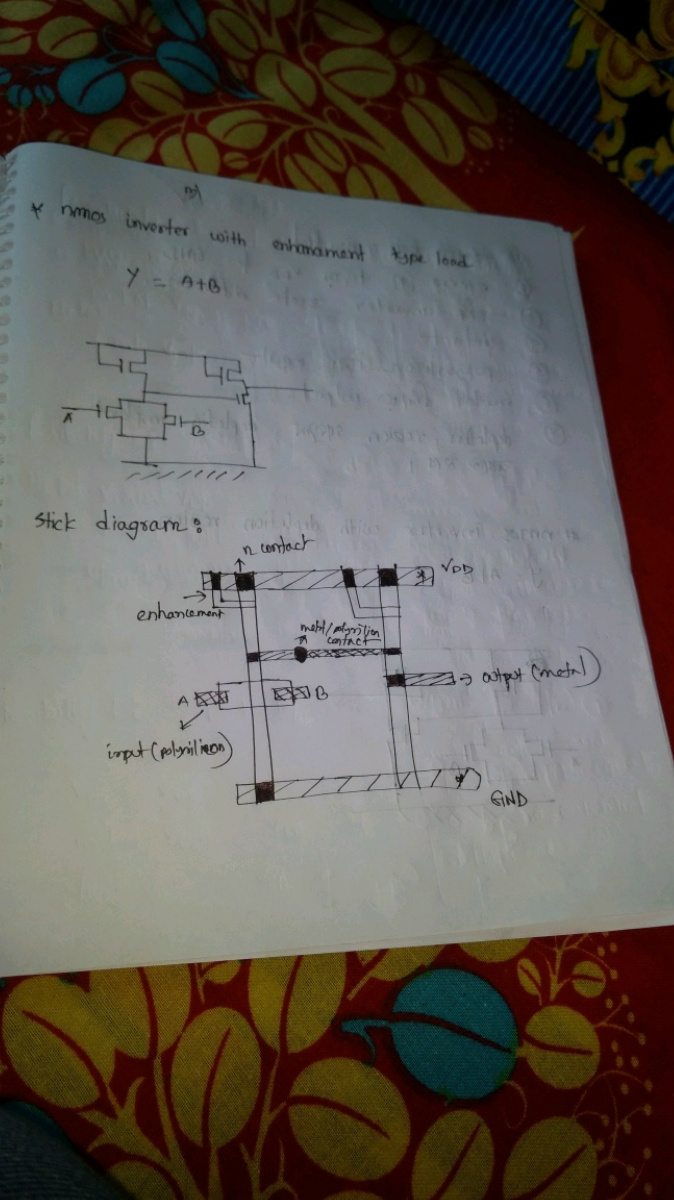 * nmos inverter with enhancament type load
Y = A+B
A
B
stick diagram:
n contact
VDD
enhancement
metal/polysilicon
contact
output (metal)
A
B
input (polysilicon)
GND